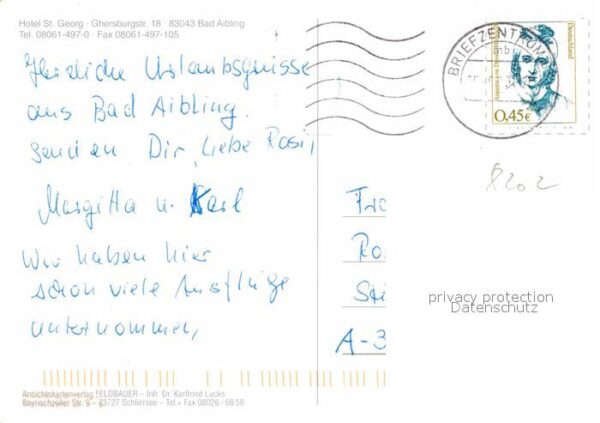 Hotel St. Georg · Ghersburgstr. 18 · 83043 Bad Aibling
Tel. 08061-497-0 · Fax 08061-497-105
Herzliche Urlaubsgrüsse
aus Bad Aibling
senden Dir, liebe Rosi,
Margitta u. Karl
Wir haben hier
schon viele Ausflüge
unternommen,
BRIEFZENTRUM
Deutschland
0,45€
8202
Fra
Ro
Ste
A-3
privacy protection
Datenschutz
Ansichtskartenverlag FELDBAUER – Inh. Dr. Karlfried Lucks
Bayrischzeller Str. 9 – 83727 Schliersee – Tel. + Fax 08026 / 68 58